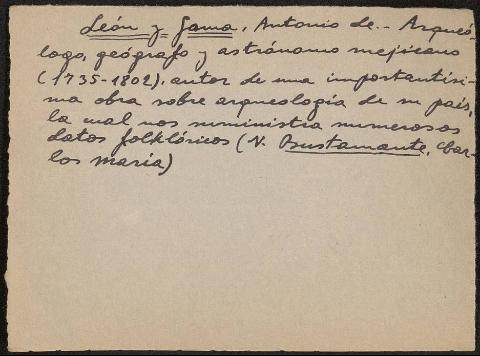 León y Gama, Antonio de.- Arqueó-
logo, geógrafo y astrónomo mejicano
(1735-1802), autor de una importantísi-
ma obra sobre arqueología de su país,
la cual nos suministra numerosos
datos folklóricos (V. Bustamante, Car-
los maría)